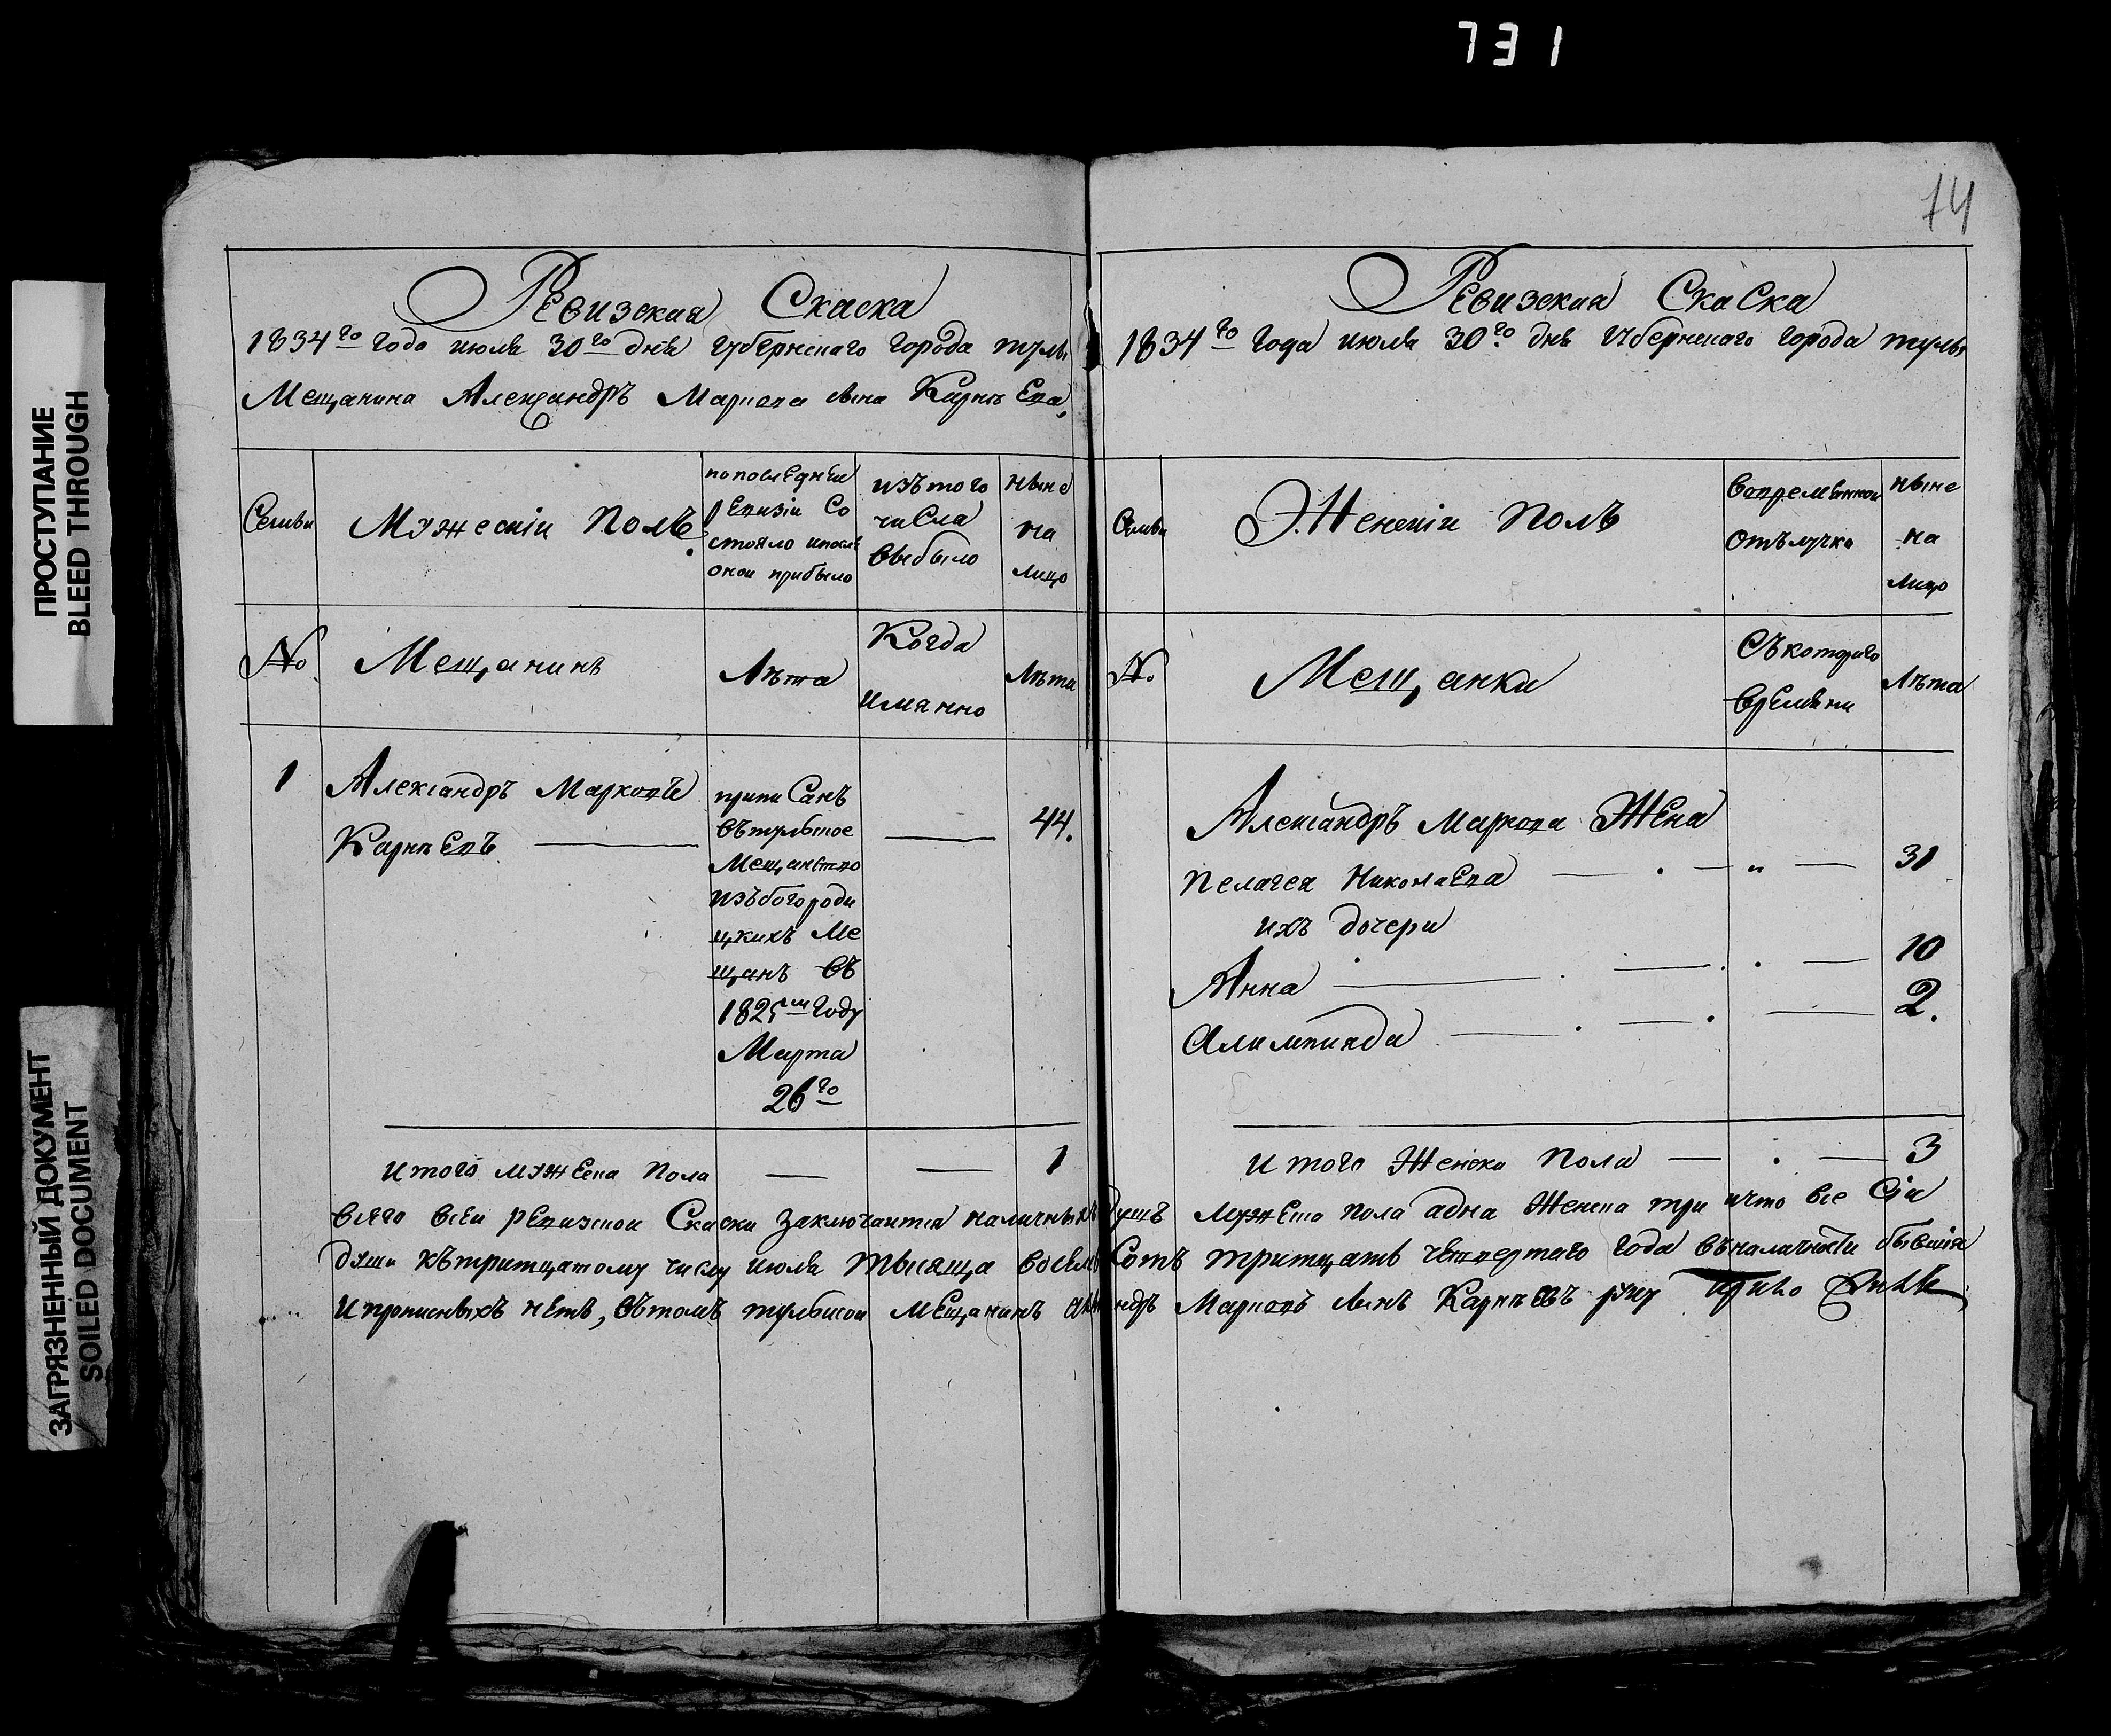 731
ПРОСТУПАНИЕ
BLEED THROUGH
ЗАГРЯЗНЕННЫЙ ДОКУМЕНТ
SOILED DOCUMENT
Ревизская Скаска
1834го года июля 30го дня губернскаго города тулы
Мещанина Александръ Маркова сына Карпъева,
Семьи
Мужескіи Полъ.
попоследнеи ревизіи Со стояло ипосле онои прибыло
изътого числа выбыло
ныне на лицо
№
Мещанинъ
Лъта
Когда имянно
Лъта
1
Александръ Марковъ
Карпъевъ
припи Санъ
въ тулское
Мещанство
изъбогороди
цкихъ Ме
щанъ въ
1825м году
Марта
26го
44.
итого мужеска пола 1
74
Ревизская Скаска
1834го года июля 30го дня губернскаго города тулы
Семьи
Женскіи Полъ
вовремянной отълучке
ныне на лицо
№
Мещанки
Съкотораго времяни
Лъта
Александръ Маркова Жена
Пелагея Николаева 31
ихъ дочери
Анна 10
Алимпиада 2.
итого Женска Пола 3
всего всеи ревизской Скаски заключается наличныхъ душъ мужеска пола адна Женска три ичто все Сіи
души кътритцатому числу июля тысяща восемь Сотъ тритцать четвертаго года въналичности бывшія
ипрописныхъ нетъ, вътомъ тулской мещанинъ Марковъ Сынъ Карпъевъ руку